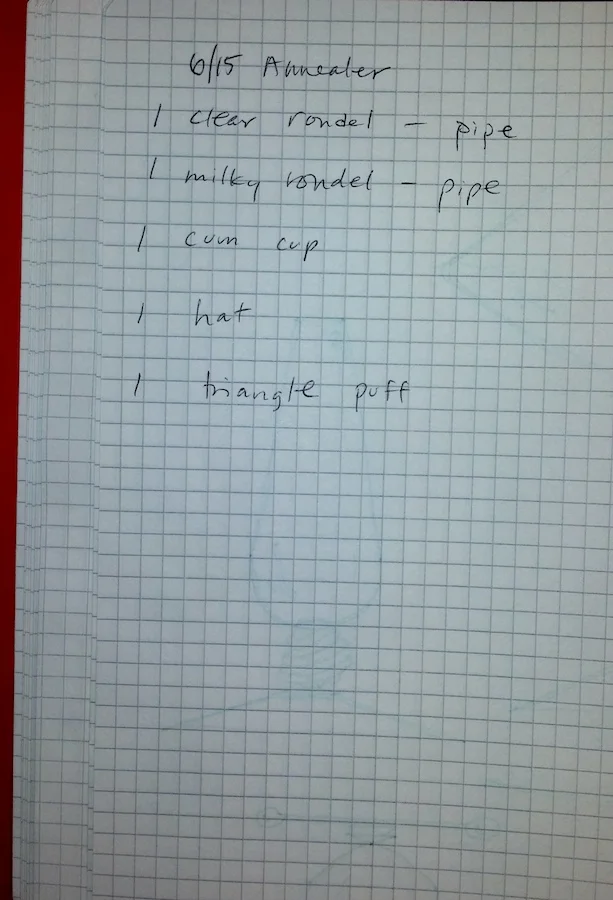 6/15 Annealer
1 clear rondel - pipe
1 milky rondel - pipe
1 cum cup
1 hat
1 triangle puff